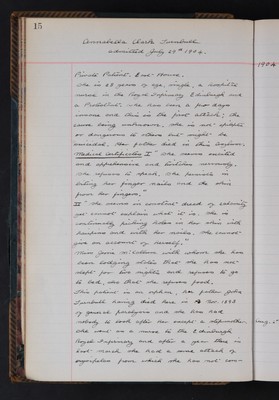 15
Annabella Clark Turnbull
admitted July 29th 1904.
1904
Private Patient. East House.
She is 28 years of age, single, a hospital
nurse in the Royal Infirmary Edinburgh and
a Protestant. She has been a few days
insane and this is the first attack; the
cause being unknown. She is not epileptic
or dangerous to others but might be
suicidal. Her father died in this Asylum.
Medical Certificates I "She seems excited
and apprehensive and trembles nervously.
She refuses to speak. She persists in
biting her finger nails and the skin
from her fingers."
II "She seems in constant dread of calamity
yet cannot explain what it is. She is
continually picking holes in her skin with
hairpins and with her nails. She cannot
give an account of herself."
with whom she has
been lodging states that she has not
slept for two nights and refuses to go
to bed, also that she refuses food.
This patient is an orphan, her father John
Turnbull having died here in Nov. 1893
of general paralysis and she has had
nobody to look after her except a stepmother.
She went as a nurse to the Edinburgh
Royal Infirmary and after a year there in
last March she had a severe attack of
erysipelas from which she has not con-